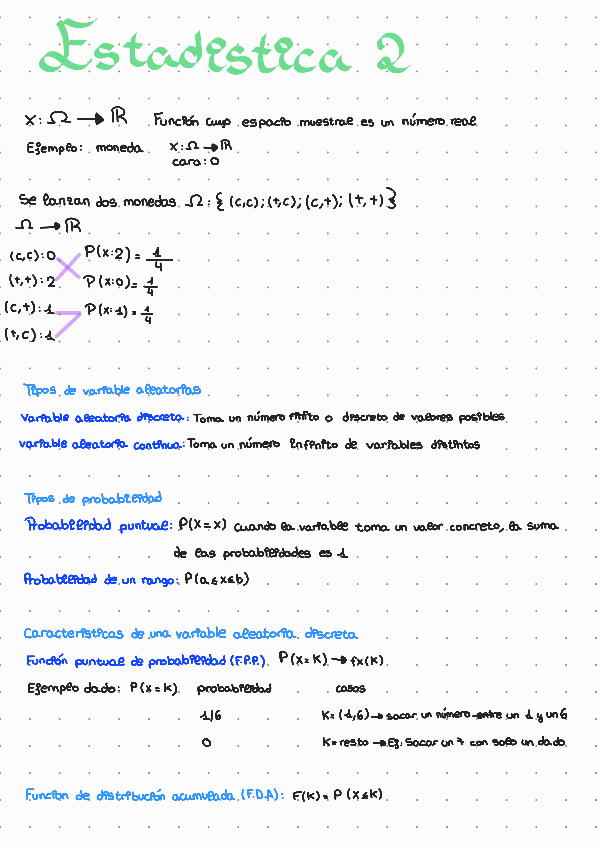 Estadística 2
X: Ω → ℝ Función cuyo espacio muestral es un número real
Ejemplo: moneda X: Ω → ℝ
cara: 0
Se lanzan dos monedas Ω: { (c,c); (t,c); (c,t); (t,t) }
Ω → ℝ
(c,c): 0 P(x:2) = 1/4
(t,t): 2 P(x:0) = 1/4
(c,t): 1 P(x:1) = 1/4
(t,c): 1
Tipos de variable aleatorias
Variable aleatoria discreta: Toma un número finito o discreto de valores posibles
variable aleatoria continua: Toma un número infinito de variables distintos
Tipos de probabilidad
Probabilidad puntual: P(X=x) cuando la variable toma un valor concreto, la suma
de las probabilidades es 1
Probabilidad de un rango: P(a≤x≤b)
Características de una variable aleatoria discreta
Función puntual de probabilidad (F.P.P). P(x=K) → fx(K)
Ejemplo dado: P(x=K) probabilidad casos
1/6 K=(1,6) → sacar un número entre un 1 y un 6
0 K=resto → Ej: Sacar un 7 con solo un dado.
Función de distribución acumulada (F.D.A): F(K) = P(X≤K)